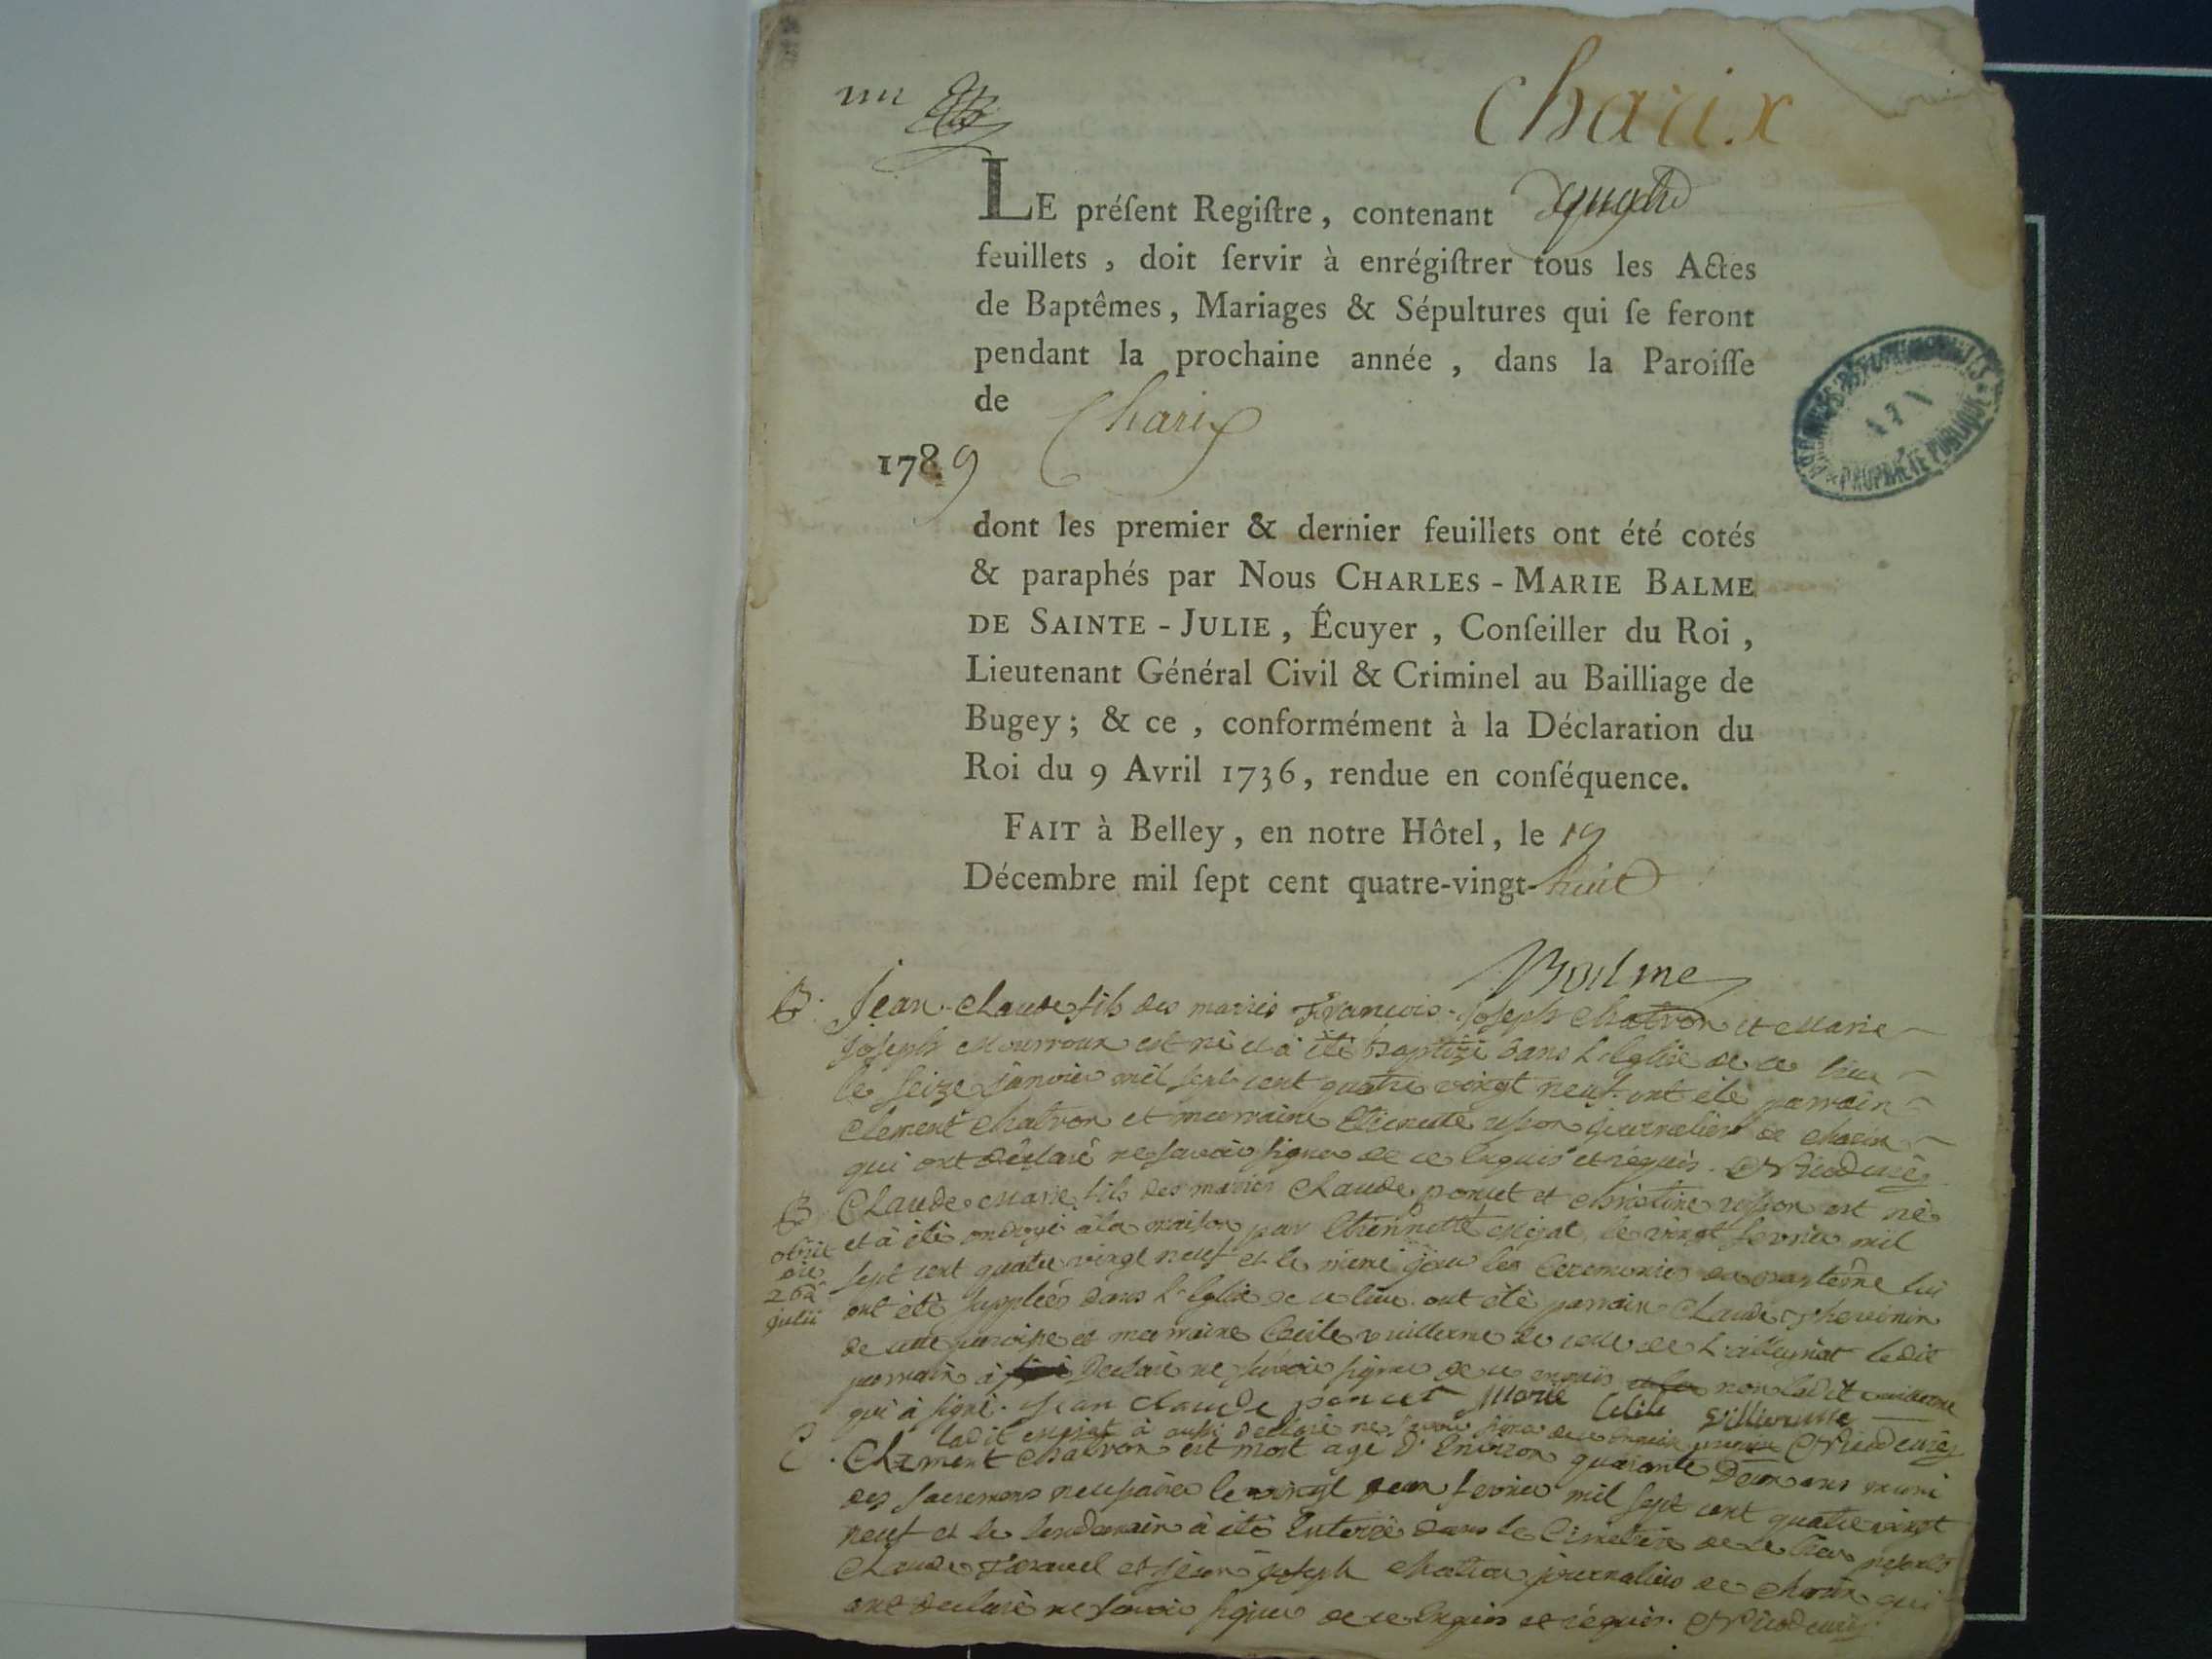 Charix
LE préſent Regiſtre, contenant
feuillets, doit ſervir à enrégiſtrer tous les Actes
de Baptêmes, Mariages & Sépultures qui ſe feront
pendant la prochaine année, dans la Paroiſſe
de Charix
1789
dont les premier & dernier feuillets ont été cotés
& paraphés par Nous CHARLES-MARIE BALME
DE SAINTE-JULIE, Écuyer, Conſeiller du Roi,
Lieutenant Général Civil & Criminel au Bailliage de
Bugey; & ce, conformément à la Déclaration du
Roi du 9 Avril 1736, rendue en conſéquence.
FAIT à Belley, en notre Hôtel, le 19
Décembre mil ſept cent quatre-vingt-huit
Balme
ARCHIVES DÉPARTEMENTALES
AIN
PROPRIÉTÉ PUBLIQUE
B. Jean-Claude fils des mariés François-Joseph Chatron et Marie
Joseph Mourroux est né et à été baptizé dans l'Eglise de ce lieu
le seize janvier mil sept cent quatre vingt neuf ont été parrain
Clement Chatron et marraine Etiennette journaliers de Charix
qui ont déclaré ne savoir signer de ce enquis et réquis.
B. Claude Marie fils des mariés Claude ponçet et Christine est né
et à été ondoyé à la maison par Etiennette le vingt fevrier mil
obiit die 26a julii
sept cent quatre vingt neuf et le même jour les Ceremonies du baptême lui
ont été supplées dans l'Eglise de ce lieu. ont été parrain Claude
de cette paroisse et marraine Cecile vuillerme de celle de Lalleyriat ledit
parrain à déclaré ne savoir signer de ce enquis non ladite vuillerme
qui à signé. Jean Claude poncet Marie Cecile
à aussi déclaré ne savoir signer de ce enquis
Clement Chatron est mort agé d'Environ quarante deux ans muni
des sacremens necessaires le vingt fevrier mil sept cent quatre vingt
neuf et le lendemain à été Enterré dans le Cimetière de ce lieu présents
Claude et Jean Joseph Chatron journaliers de Charix qui
ont déclaré ne savoir signer de ce Enquis et réquis.